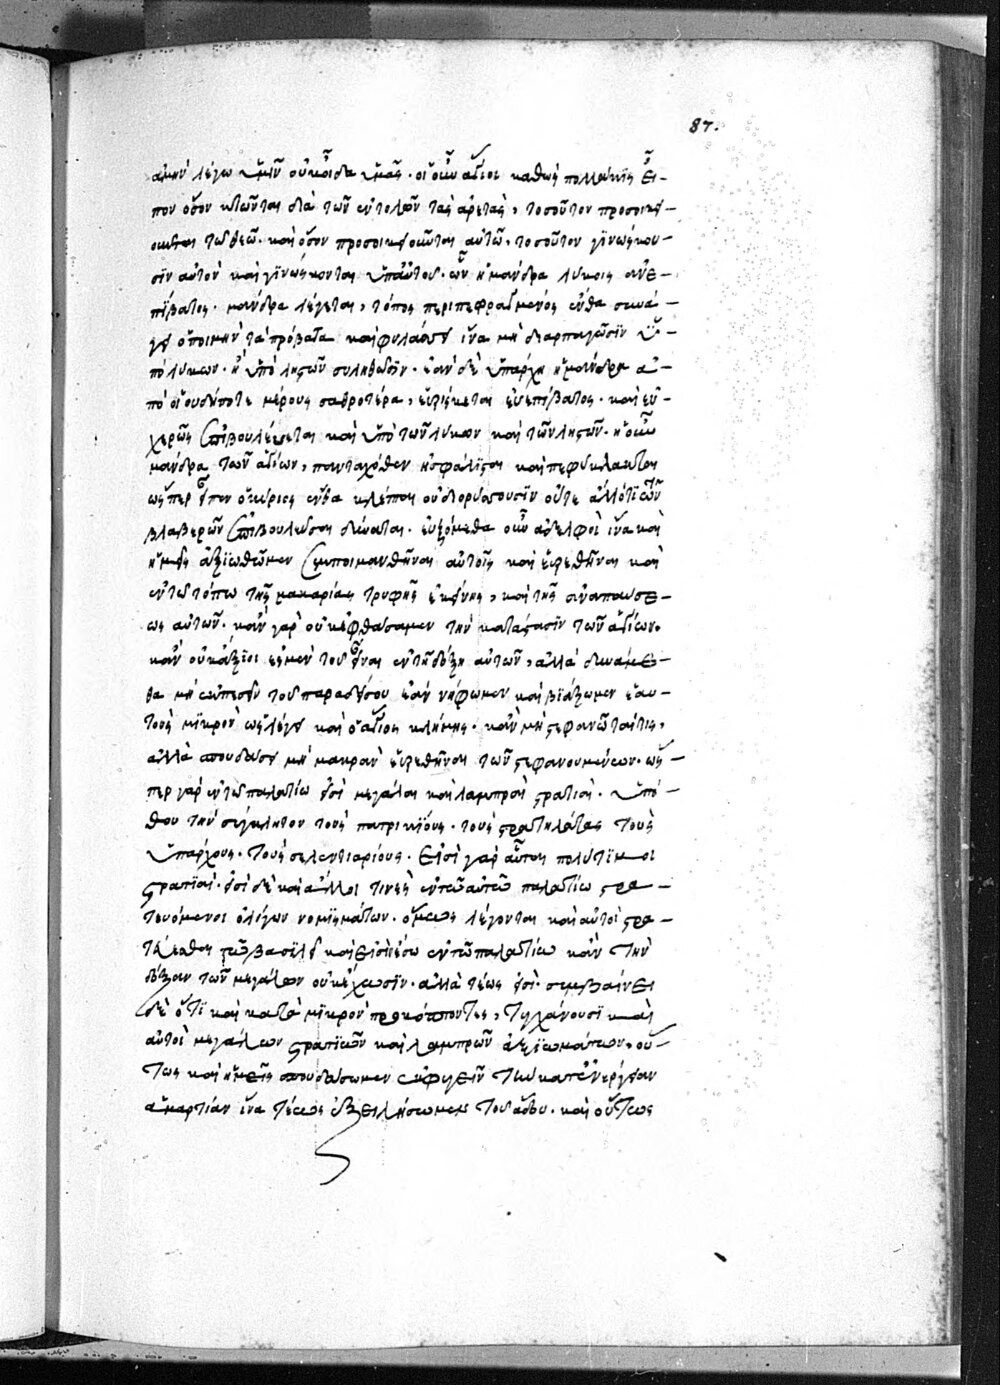 87.
ἀμὴν λέγω ὑμῖν οὐκ οἶδα ὑμᾶς. οἱ οὖν ἅγιοι καθὼς πολλάκις εἶ-
πον ὅσον κτῶνται διὰ τῶν ἐντολῶν τὰς ἀρετὰς, τοσοῦτον προσοικει-
οῦνται τῷ θεῷ. καὶ ὅσον προσοικειοῦνται αὐτῷ, τοσοῦτον γϊνώσκου-
σϊν αὐτὸν καὶ γϊνώσκονται ὑπ' αὐτοῦ. ὧν ἡ μάνδρα λύκοις ἀνε-
πίβατος. μάνδρα λέγεται, τόπος περιπεφραγμένος ἔνθα συνά-
γει ὁ ποιμὴν τὰ πρόβατα καὶ φυλάσσει ἵνα μὴ διαρπαγῶσϊν ὑ-
πὸ λύκων. ἢ ὑπὸ ληστῶν συληθῶσϊν. ἐὰν δὲ ὑπάρχη ἡ μάνδρα ἀ-
πὸ οἱουδήποτε μέρους σαθροτέρα, εὑρίσκεται εὐεπίβατος. καὶ εὐ-
χερῶς ἐπιβουλεύεται καὶ ὑπὸ τῶν λύκων καὶ τῶν ληστῶν. ἡ οὖν
μάνδρα τῶν ἁγίων, πανταχόθεν ἠσφάλισται καὶ πεφύλακται
ὥσπερ εἶπεν ὁ κύριος ἔνθα κλέπται οὐ διορύσσουσϊν οὔτε ἄλλό τϊ τῶν
βλαβερῶν ἐπιβουλεῦσαι δύναται. εὐξόμεθα οὖν ἀδελφοὶ ἵνα καὶ
ἡμεῖς ἀξϊωθῶμεν συμποιμανθῆναι αὐτοῖς καὶ εὑρεθῆναι καὶ
ἐν τῷ τόπω τῆς μακαρίας τρυφῆς ἐκείνης, καὶ τῆς ἀναπαύσε-
ως αὐτῶν. κἂν γὰρ οὐκ ἐφθάσαμεν τὴν κατάστασϊν τῶν ἁγίων.
κἂν οὐκ ἄξϊοι ἐσμὲν τοῦ εἶναι ἐν τῇ δόξη αὐτῶν, ἀλλὰ δυνάμε-
θα μὴ ἐκπεσεῖν τοῦ παραδείσου ἐὰν νήφωμεν καὶ βϊάζωμεν ἑαυ-
τοὺς μϊκρὸν ὡς λέγει καὶ ὁ ἅγιος κλήμης. κἂν μὴ στεφανῶταί τις,
ἀλλὰ σπουδάσει μὴ μακρὰν εὑρεθῆναι τῶν στεφανουμένων. ὥσ-
περ γὰρ ἐν τῷ παλατίω εἰσὶ μεγάλαι καὶ λαμπραὶ στρατιαὶ. ὑπό-
θου τὴν σύγκλητον τοὺς πατρικίους. τοὺς στρατηλάτας τοὺς
ὑπάρχους. τοὺς σελεντιαρίους. εἰσὶ γὰρ αὗται πολύτϊμοι
στρατϊαὶ. εἰσὶ δὲ καὶ ἄλλοι τινὲς ἐν τῶ αὐτῶ παλατίω στρα-
τευόμενοι ὀλίγων νομϊσμάτων. ὅμως λέγονται καὶ αὐτοὶ στρα-
τεύεσθαι τῶ βασϊλεῖ καὶ εἰσὶν ἔσω ἐν τῶ παλατίω κἂν τὴν
δόξαν τῶν μεγάλων οὐκ ἔχωσϊν. ἀλλὰ τέως εἰσὶ. συμβαίνει
δὲ ὅτϊ καὶ κατὰ μϊκρὸν προκόπτοντες, τυγχάνουσϊ καὶ
αὐτοὶ μεγάλων στρατϊῶν καὶ λαμπρῶν ἀξϊωμάτων. οὕ-
τως καὶ ἡμεῖς σπουδάσωμεν ἐκφυγεῖν τὴν κατ' ἐνέργειαν
ἁμαρτίαν ἵνα τέως ἐξειλήσωμεν τοῦ ἅδου. καὶ οὕτως